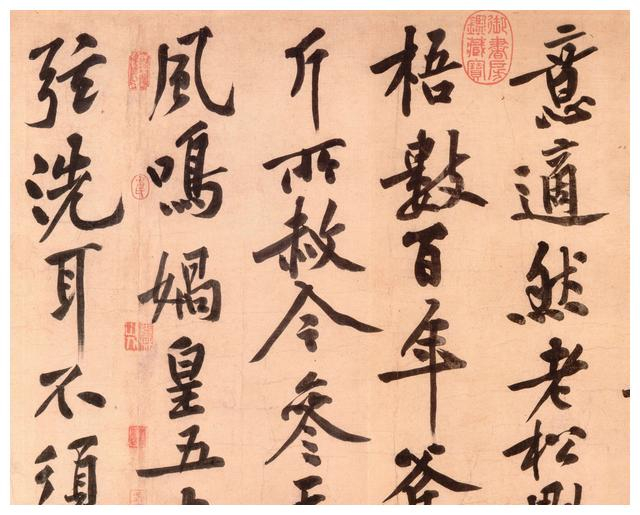 意適然老松
梧數百年斧
斤所赦今參
風鳴媧皇五
弦洗耳不須
御書房鑑藏寶